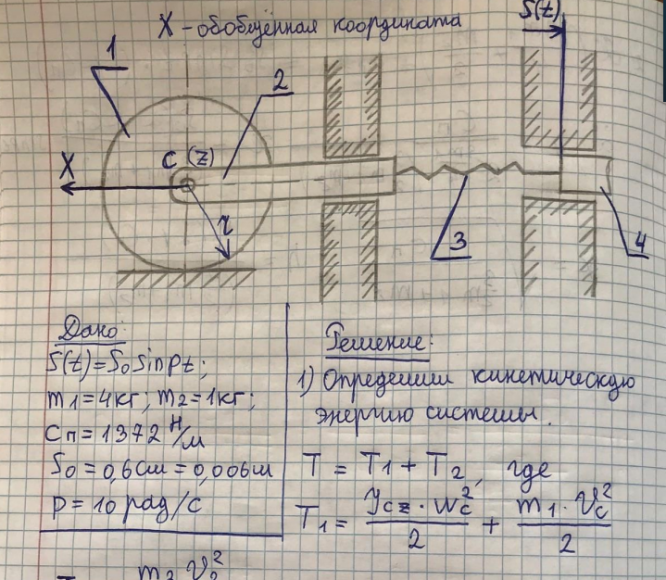 X - обобщённая координата
S(t)
1
2
C (z)
X
r
3
4
Дано:
S(t)=S₀ sin pt;
m₁=4кг; m₂=1кг;
Cп=1372 Н/м
S₀=0,6см=0,006м
p=10 рад/с
Решение:
1) Определим кинетическую
энергию системы.
T = T₁ + T₂, где
T₁ = (Jcz · ωc²)/2 + (m₁ · Vc²)/2
m₂ V₂²